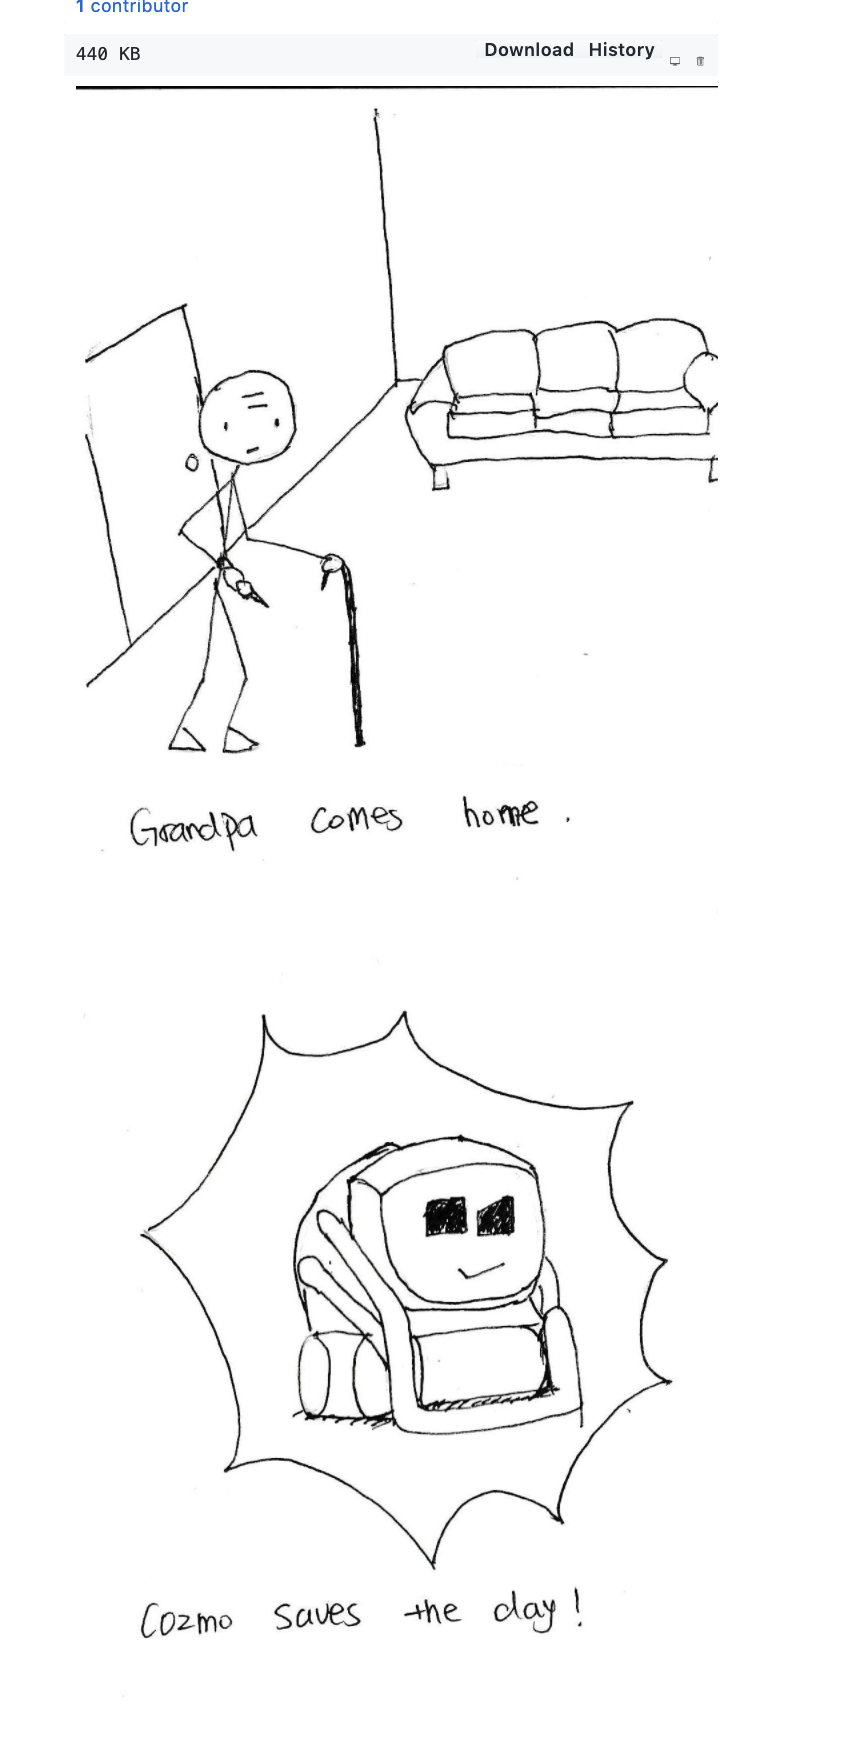 1 contributor
440 KB Download History
Grandpa comes home.
Cozmo saves the day!